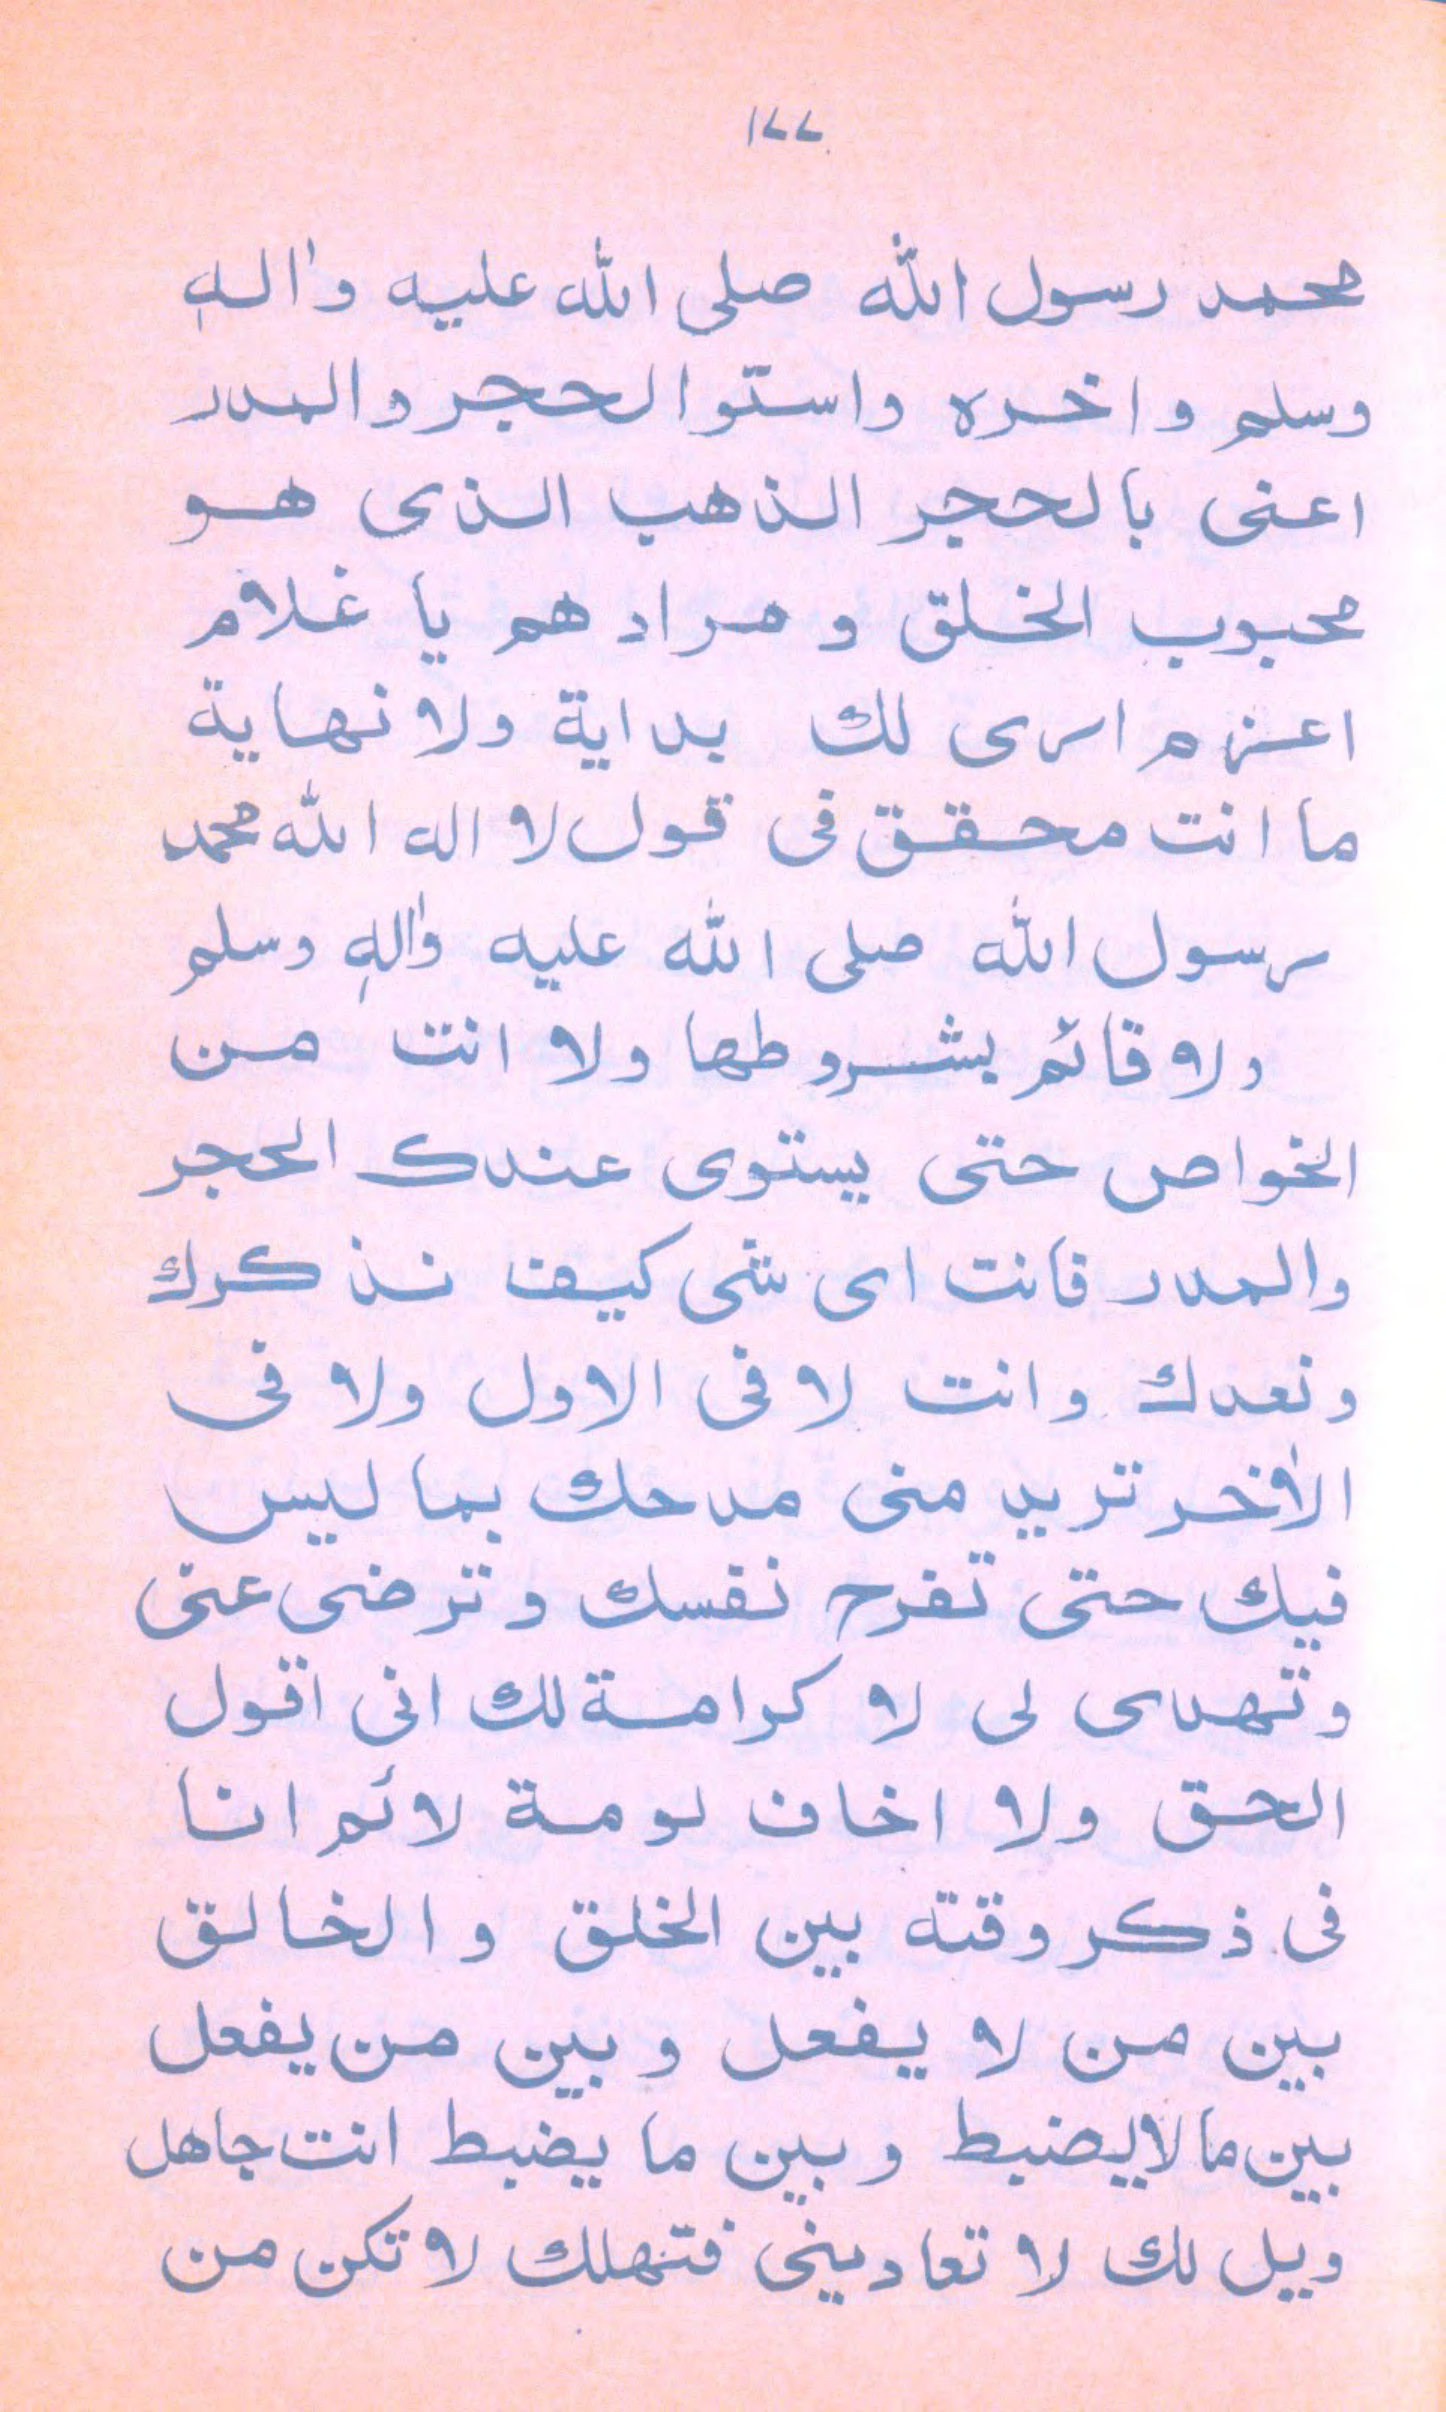 ١٧٧
محمد رسول الله صلى الله عليه واله
وسلم واخره واستوالحجر والمدر
اعنى بالحجر الذهب الذى هو
محبوب الخلق ومرادهم يا غلام
اعزم ارى لك بداية ولا نهاية
ما انت محقق فى قول لا اله الله محمد
رسول الله صلى الله عليه واله وسلم
ولا قائم بشروطها ولا انت من
الخواص حتى يستوى عندك الحجر
والمدر فانت اى شى كيف نذكرك
ونعدك وانت لا فى الاول ولا فى
الاخر تريد منى مدحك بما ليس
فيك حتى تفرح نفسك وترضى عنى
وتهدى لى لا كرامة لك انى اقول
الحق ولا اخاف لومة لائم انا
فى ذكر وقته بين الخلق والخالق
بين من لا يفعل وبين من يفعل
بين ما لا يضبط وبين ما يضبط انت جاهل
ويل لك لا تعادينى فتهلك لا تكن من